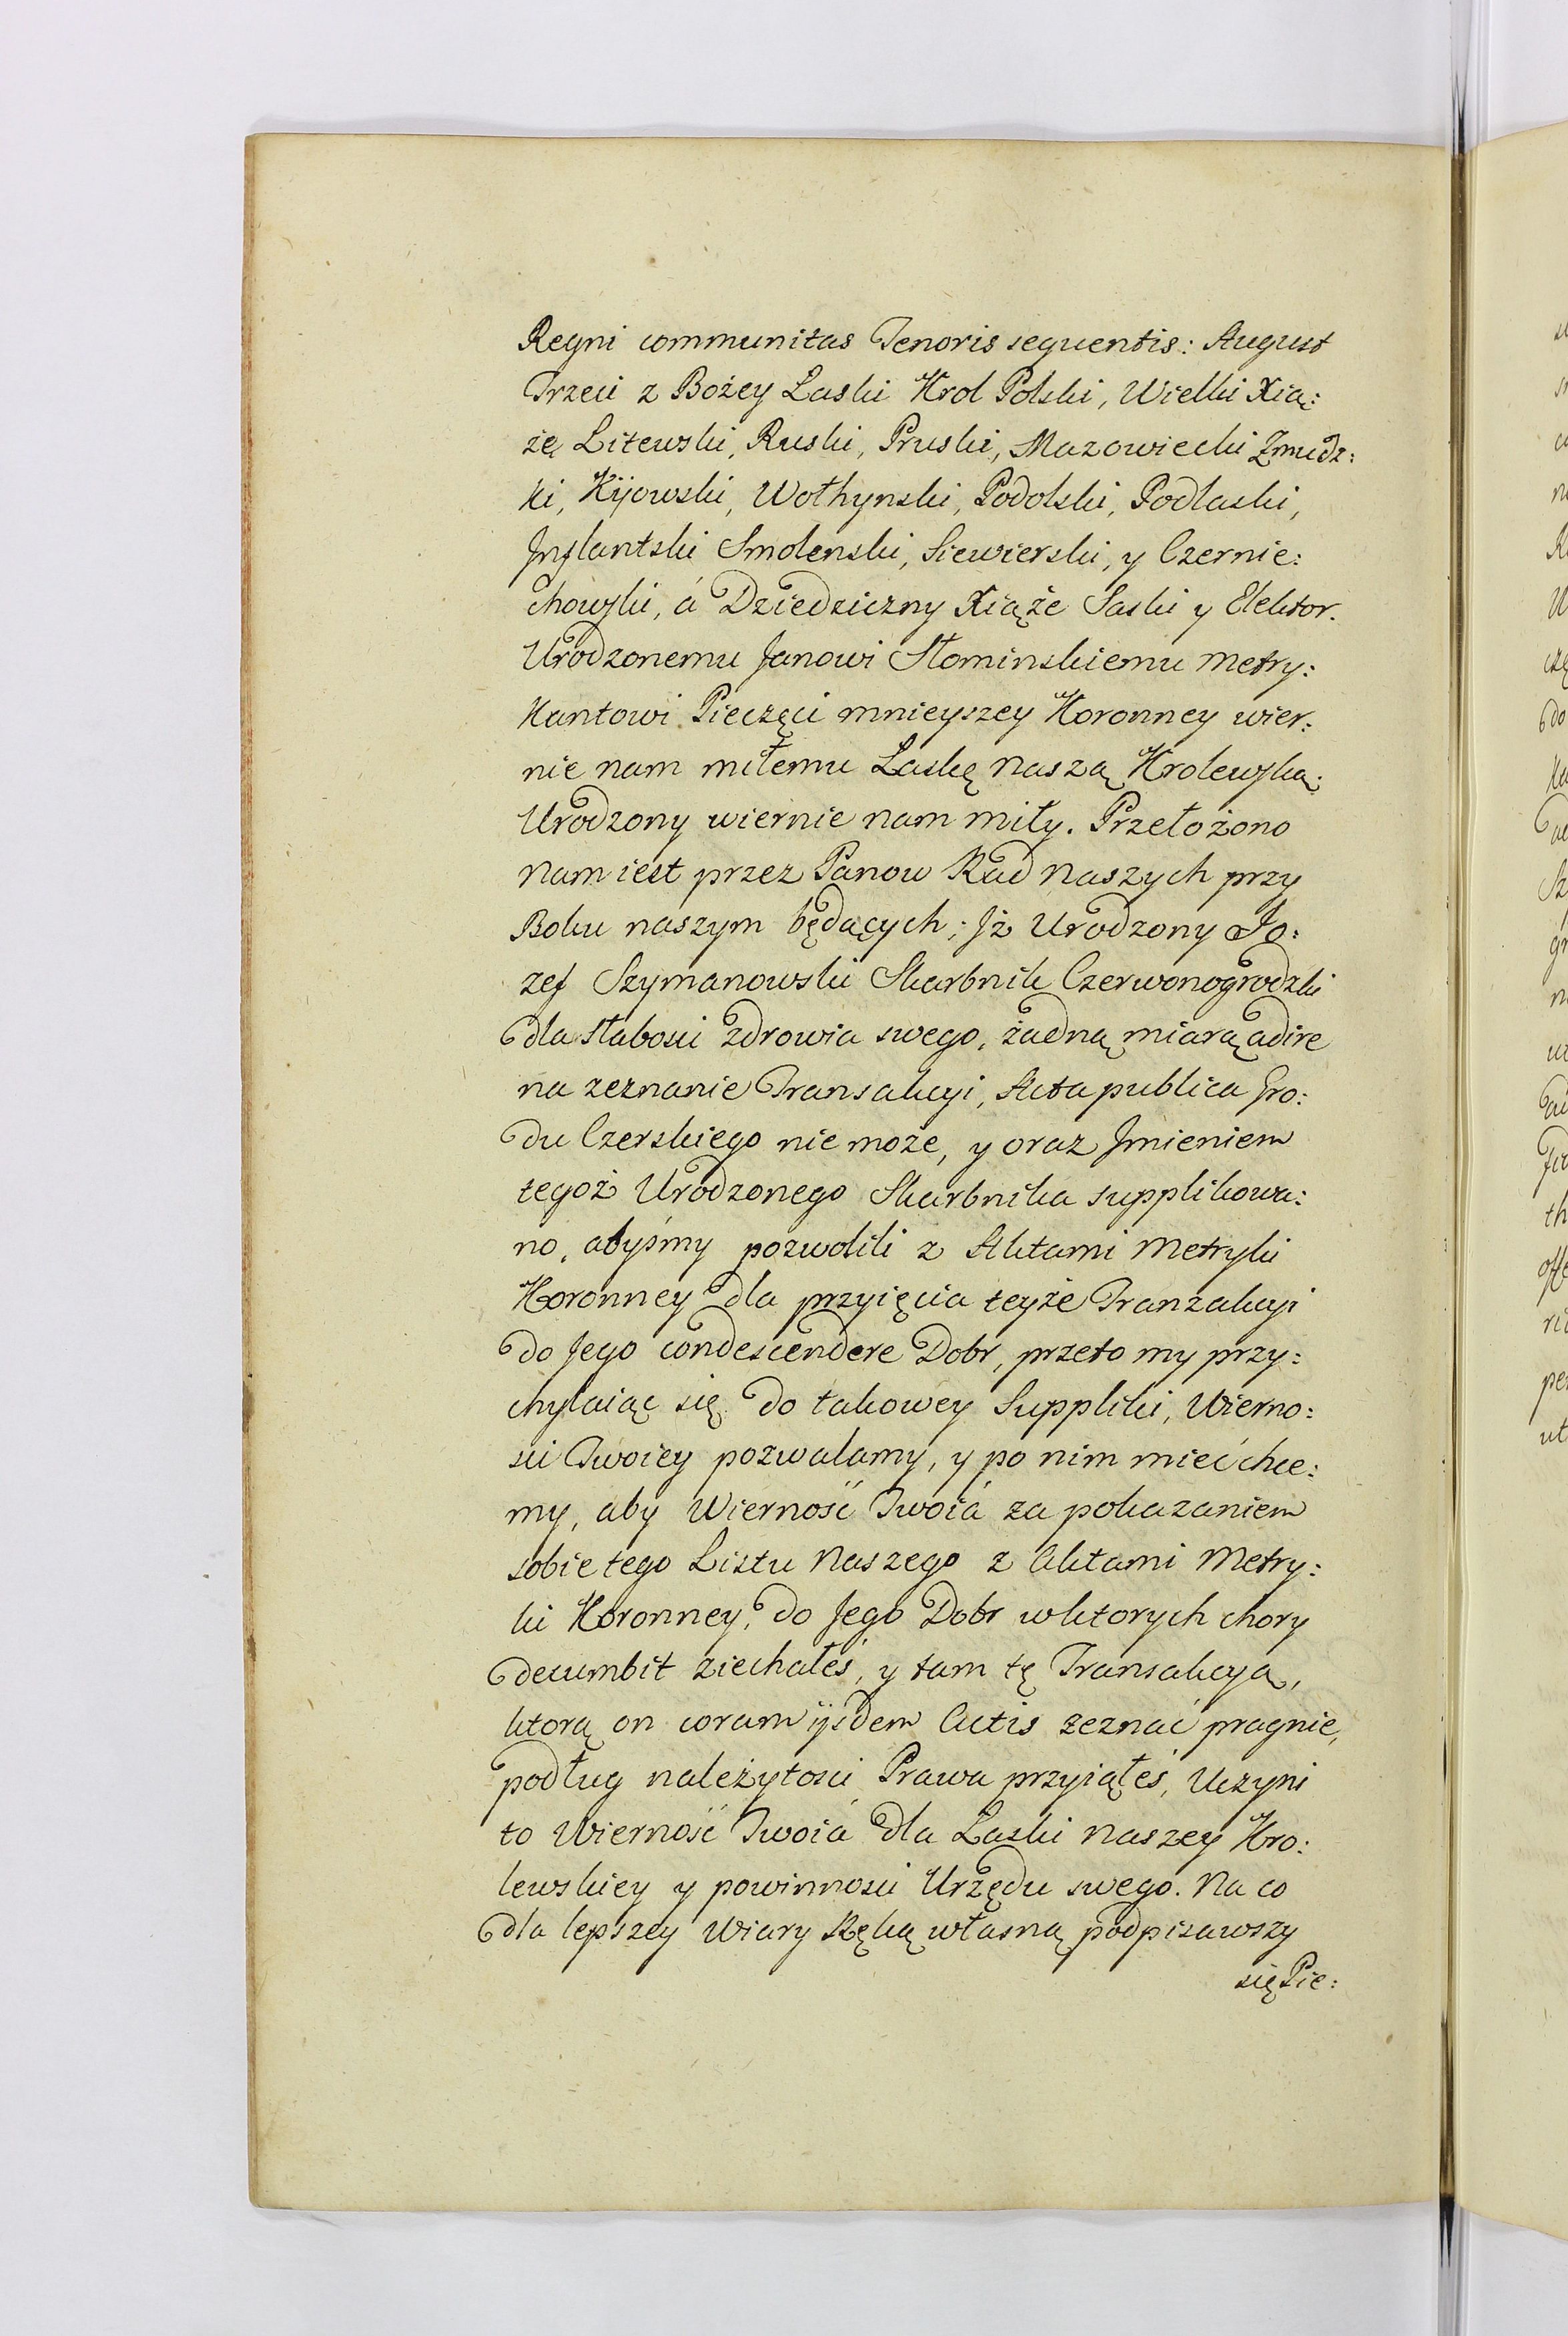 Regni communitas Tenoris sequentis: August
Trzeci z Bożey Łaski Krol Polski, Wielki Xią:
żę Litewski, Ruski, Pruski, Mazowiecki Zmudz:
ki, Kijowski, Wołhynski, Podolski, Podlaski,
Inflantski Smolenski, Siewierski, y Czernie:
chowski, á Dziedziczny Xiąże Saski y Elektor.
Urodzonemu Janowi Słominskiemu Metry:
kantowi Pieczęci mnieyszey Koronney wier:
nie nam miłemu Łaskę Naszą Krolewską:
Urodzony wiernie nam miły. Przełożono
Nam iest przez Panow Rad Naszych przy
Boku naszym będących; Jż Urodzony Jo:
zef Szymanowski Skarbnik Czerwonogrodzki
dla słabosci zdrowia swego, żadną miarą adire
na zeznanie Transakcyi, Acta publica Gro:
du Czerskiego nie może, y oraz Jmieniem
tegoż Urodzonego Skarbnika supplikowa:
no, abyśmy pozwolili z Aktami Metryki
Koronney dla przyięcia teyże Tranzakcyi
do Jego condescendere Dobr, przeto my przy:
chylaiąc się do takowey Suppliki, Wierno:
sci Twoiey pozwalamy, y po nim mieć chce:
my, aby Wierność Twoiá za pokazaniem
sobie tego Listu Naszego z Aktami Metry:
ki Koronney, do Jego Dobr w ktorych chory
decumbit ziechałeś, y tam tę Transakcyą,
ktorą on coram ijsdem Actis zeznać pragnie,
podług należytosci Prawa przyiąłeś, Uczyni
to Wierność Twoiá dla Łaski Naszey Kro:
lewskiey y powinnosci Urzędu swego. Na co
dla lepszey Wiary Ręką własną podpisawszy
się Pie: